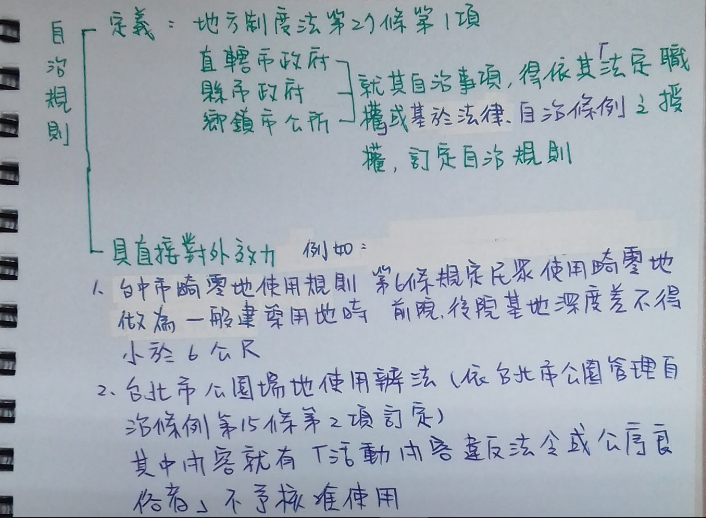 自治規則
定義：地方制度法第27條第1項
直轄市政府
縣市政府
鄉鎮市公所
就其自治事項，得依其「法定職
權或基於法律、自治條例之授
權，訂定自治規則
具直接對外效力 例如：
1、台中市畸零地使用規則 第6條規定民眾使用畸零地
做為一般建築用地時 前院、後院基地深度差不得
小於6公尺
2、台北市公園場地使用辦法（依台北市公園管理自
治條例第15條第2項訂定）
其中內容就有「活動內容違反法令或公序良
俗者」不予核准使用